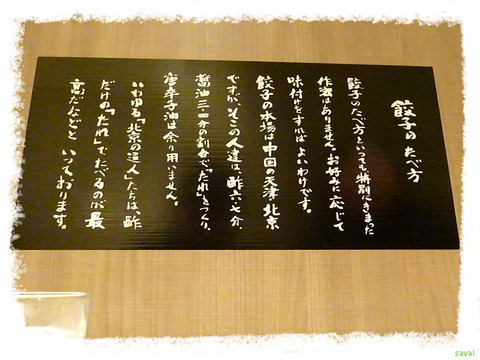 餃子のたべ方
餃子のたべ方といっても特別にきまった
作法はありません。お好みに応じて
味付けをすればよいわけです。
餃子の本場は中国の天津、北京
ですが、そこの人達は、酢六〜七分、
醤油三〜四分の割合で「たれ」をつくり、
唐辛子油は余り用いません。
いわゆる「北京の通人」たちは、酢
だけの「たれ」でたべるのが最
高だなどといっております。
saval